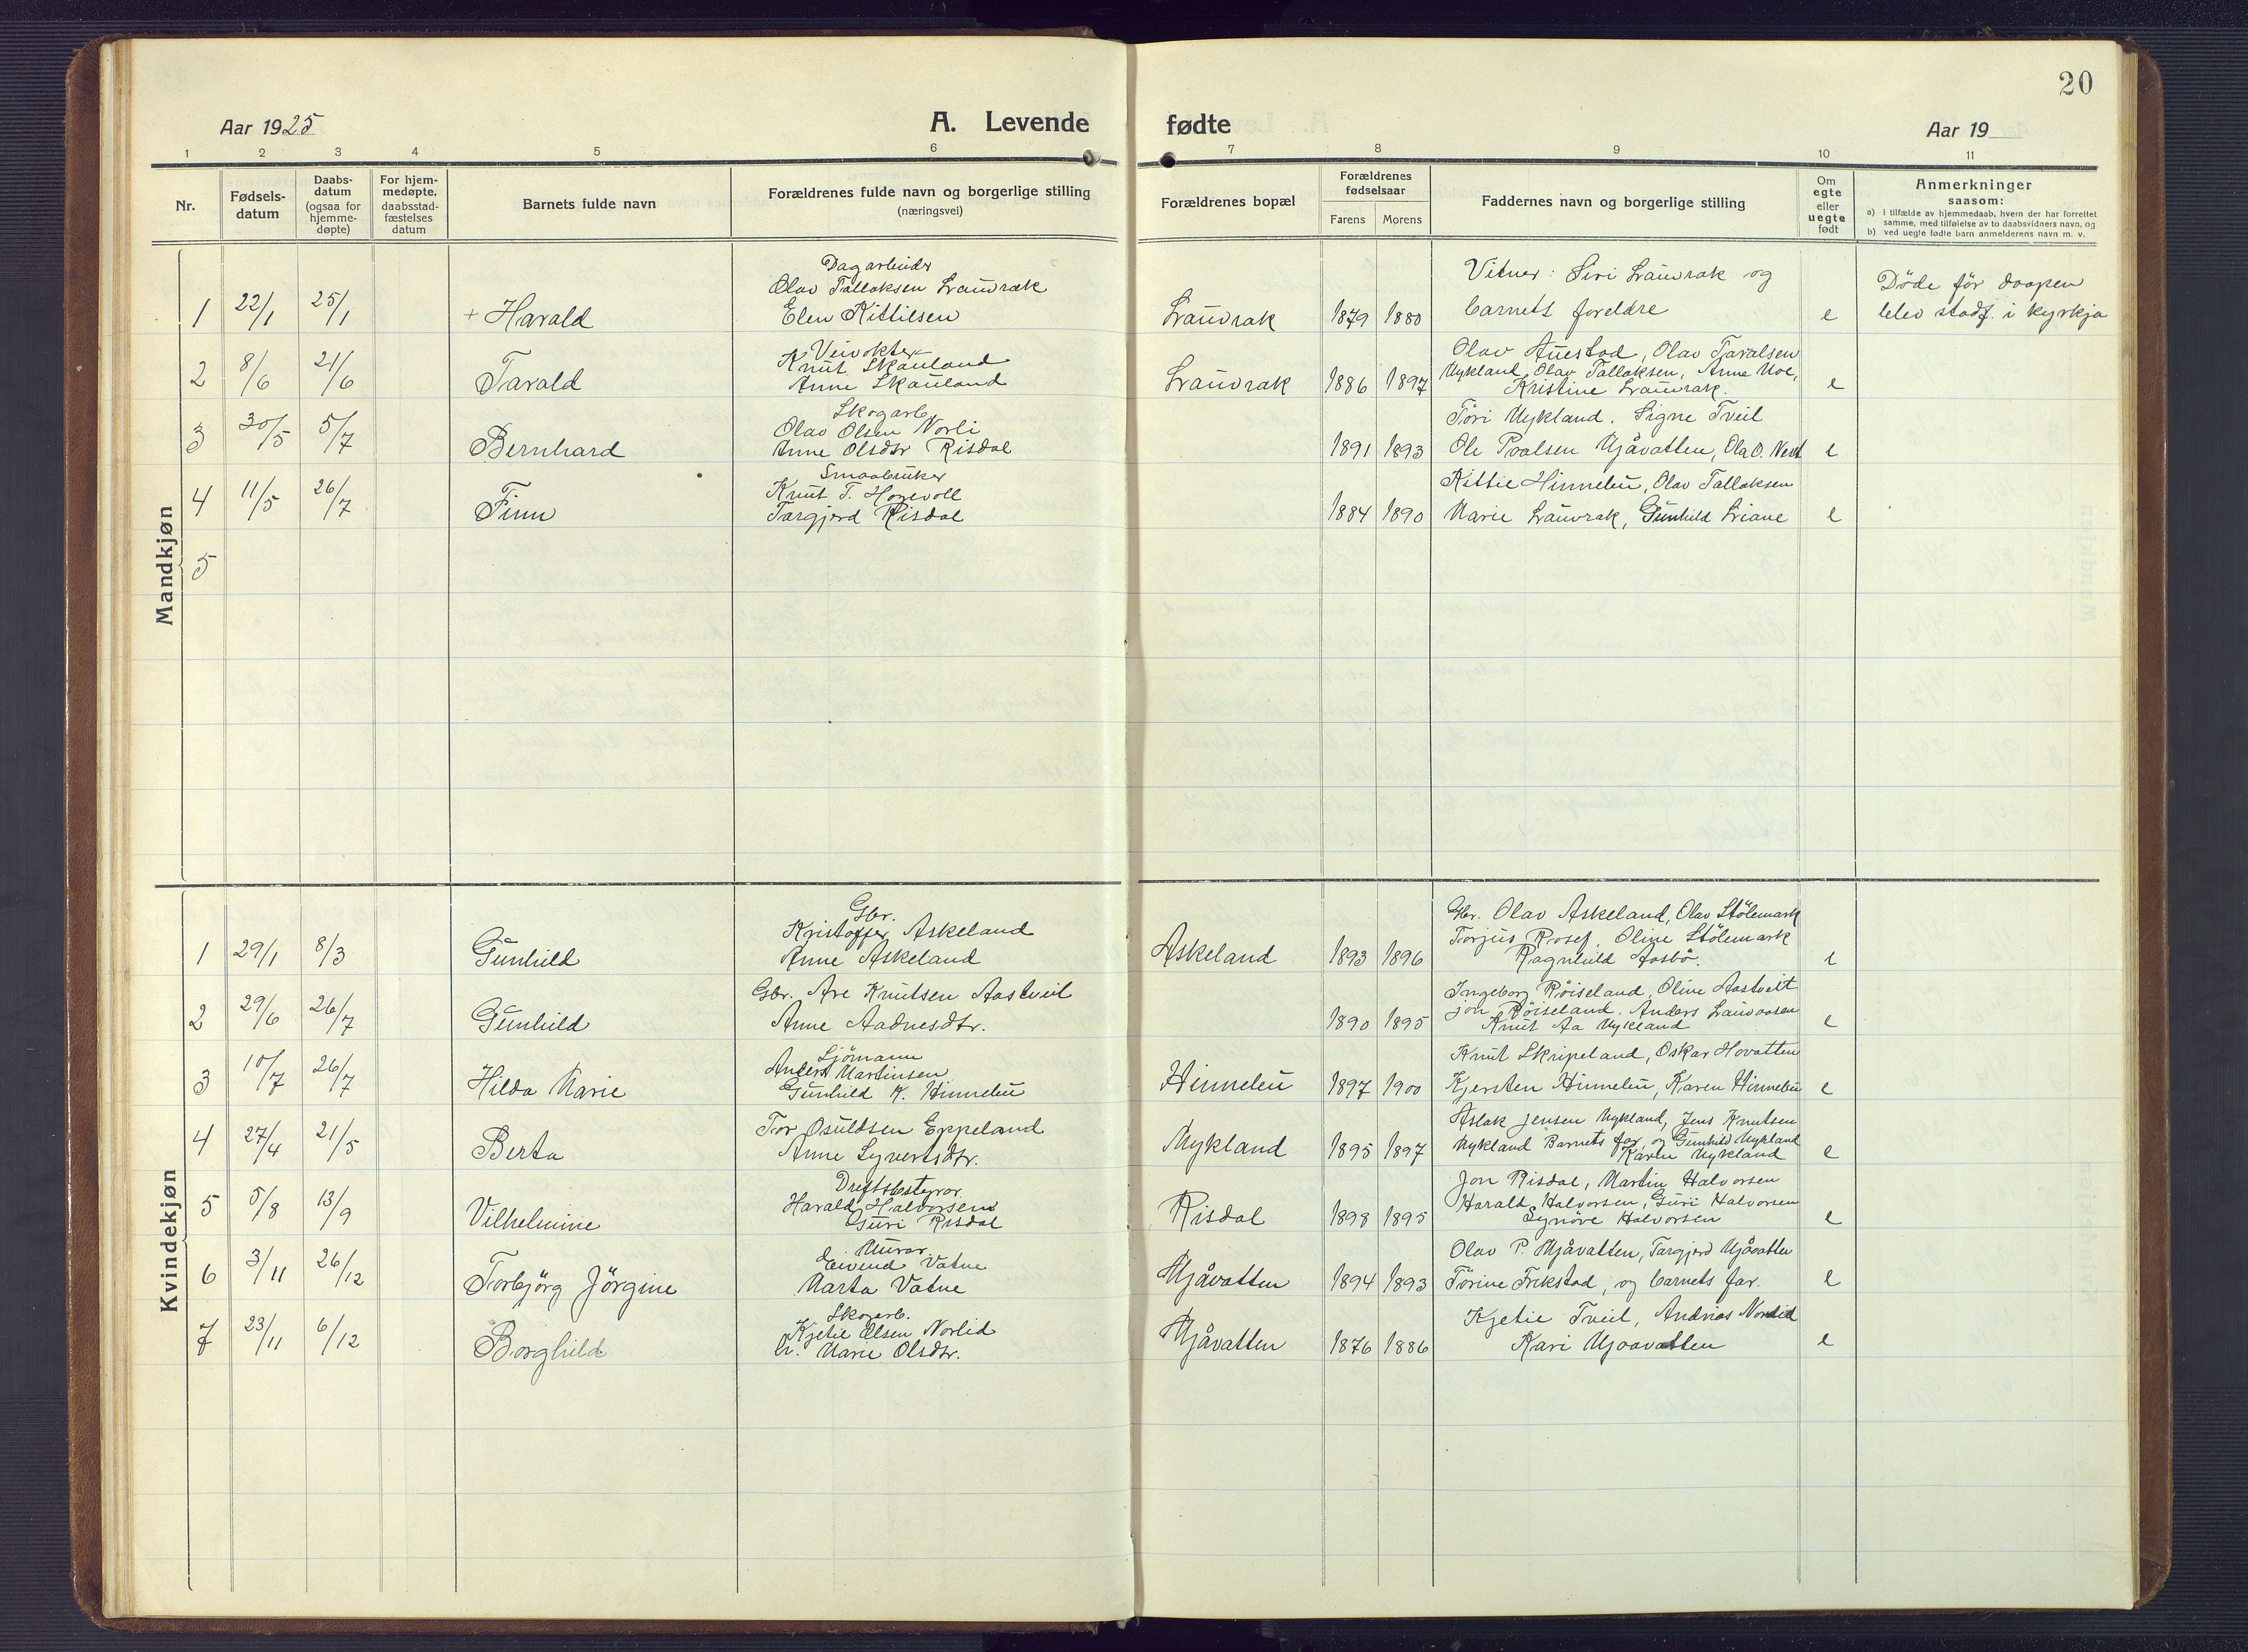 20
Aar 1925
A. Levende fødte
Aar 19
1 2 3 4 5 6 7 8 9 10 11
Nr.
Fødsels-
datum
Daabs-
datum
(ogsaa for
hjemme-
døpte)
For hjem-
medøpte,
daabsstad-
fæstelses
datum
Barnets fulde navn
Forældrenes fulde navn og borgerlige stilling
(næringsvei)
Forældrenes bopæl
Forældrenes
fødselsaar
Farens Morens
Faddernes navn og borgerlige stilling
Om
egte
eller
uegte
født
Anmerkninger
saasom:
a) i tilfælde av hjemmedaab, hvem der har forrettet
samme, med tilføielse av to daabsvidners navn, og
b) ved uegte fødte barn anmelderens navn m. v.
Mandkjøn
Dagarbeider
Olav Tallaksen Lauvrak
Elen Kittilsen
1 22/1 25/1 + Harald
Lauvrak 1879 1880
Vitner: Siri Lauvrak og
barnets foreldre
e
Döde för daapen
blev stadf. i kyrkja
Veivokter
Knut Skauland
Anne Skauland
2 8/6 21/6 Tarald
Lauvrak 1886 1897
Olav Auestad, Olav Taralsen
Mykland, Olav Tallaksen, Anne Moe,
Kristine Lauvrak.
e
Skogarb.
Olav Olsen Norli
Anne Olsdtr Risdal
3 30/5 5/7 Bernhard
1891 1893
Töri Mykland. Signe Tveil
Ole Paalsen Mjåvatten, Ola O.
e
Smaabruker
Knut T. Hovevoll
Targjerd Risdal
4 11/5 26/7 Finn
1884 1890
Kittil Hinnebu, Olav Tallaksen
Marie Lauvrak, Gunhild Liane
e
5
Kvindekjøn
Gbr.
Kristoffer Askeland
Anne Askeland
1 29/1 8/3 Gunhild
Askeland 1893 1896
Gbr. Olav Askeland, Olav Stölemark
Torjus Rosef. Oline Stölemark
Ragnhild Aasbö.
e
Gbr. Are Knutsen Aastveit
Anne Aadnesdtr.
2 29/6 26/7 Gunhild
1890 1895
Ingeborg Röiseland, Oline Aastveit
Jon Röiseland. Anders
Knut Aa Mykland
e
Sjömann
Anders Martinsen
Gunhild K. Hinnebu
3 10/7 26/7 Hilda Marie
Hinnebu 1897 1900
Knut Skripeland, Oskar Hovatten
Kjersten Hinnebu, Karen Hinnebu
e
Tor Osuldsen Eppeland
Anne Syvertsdtr.
4 27/4 21/5 Berta
Mykland 1895 1897
Aslak Jensen Mykland, Jens Knutsen
Mykland Barnets far, og Gunhild Mykland
Karen Mykland
e
Driftsbestyrar
Harald Halvorsen
Guri Risdal
5 5/8 13/9 Vilhelmine
Risdal 1898 1895
Jon Risdal, Martin Halvorsen
Harald Halvorsen, Guri Halvorsen
Synöve Halvorsen
e
Murar.
Eivend Vatne
Marta Vatne
6 3/11 26/12 Torbjörg Jörgine
Mjåvatten 1894 1893
Olav P. Mjåvatten, Targjerd Mjåvatten
Törine Frikstad, og barnets far.
e
Skogarb.
Kjetil Olsen Norlid
Marie Olsdtr.
7 23/11 6/12 Borghild
Mjåvatten 1876 1886
Kjetil Tveit, Andreas Norlid
Kari Mjaavatten
e